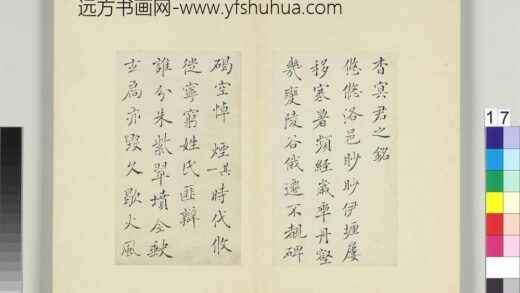 远方书画网-www.yfshuhua.com
杳冥君之銘
悠悠洛邑眇眇伊壥屢
移寒暑頻經歲年丹壑
幾變陵谷俄遷不覩碑
碣空悼煙其一時代攸
徙寧窮姓氏匪辯
誰分朱紫翠墳全缺
玄扃亦毀久歇火風
17